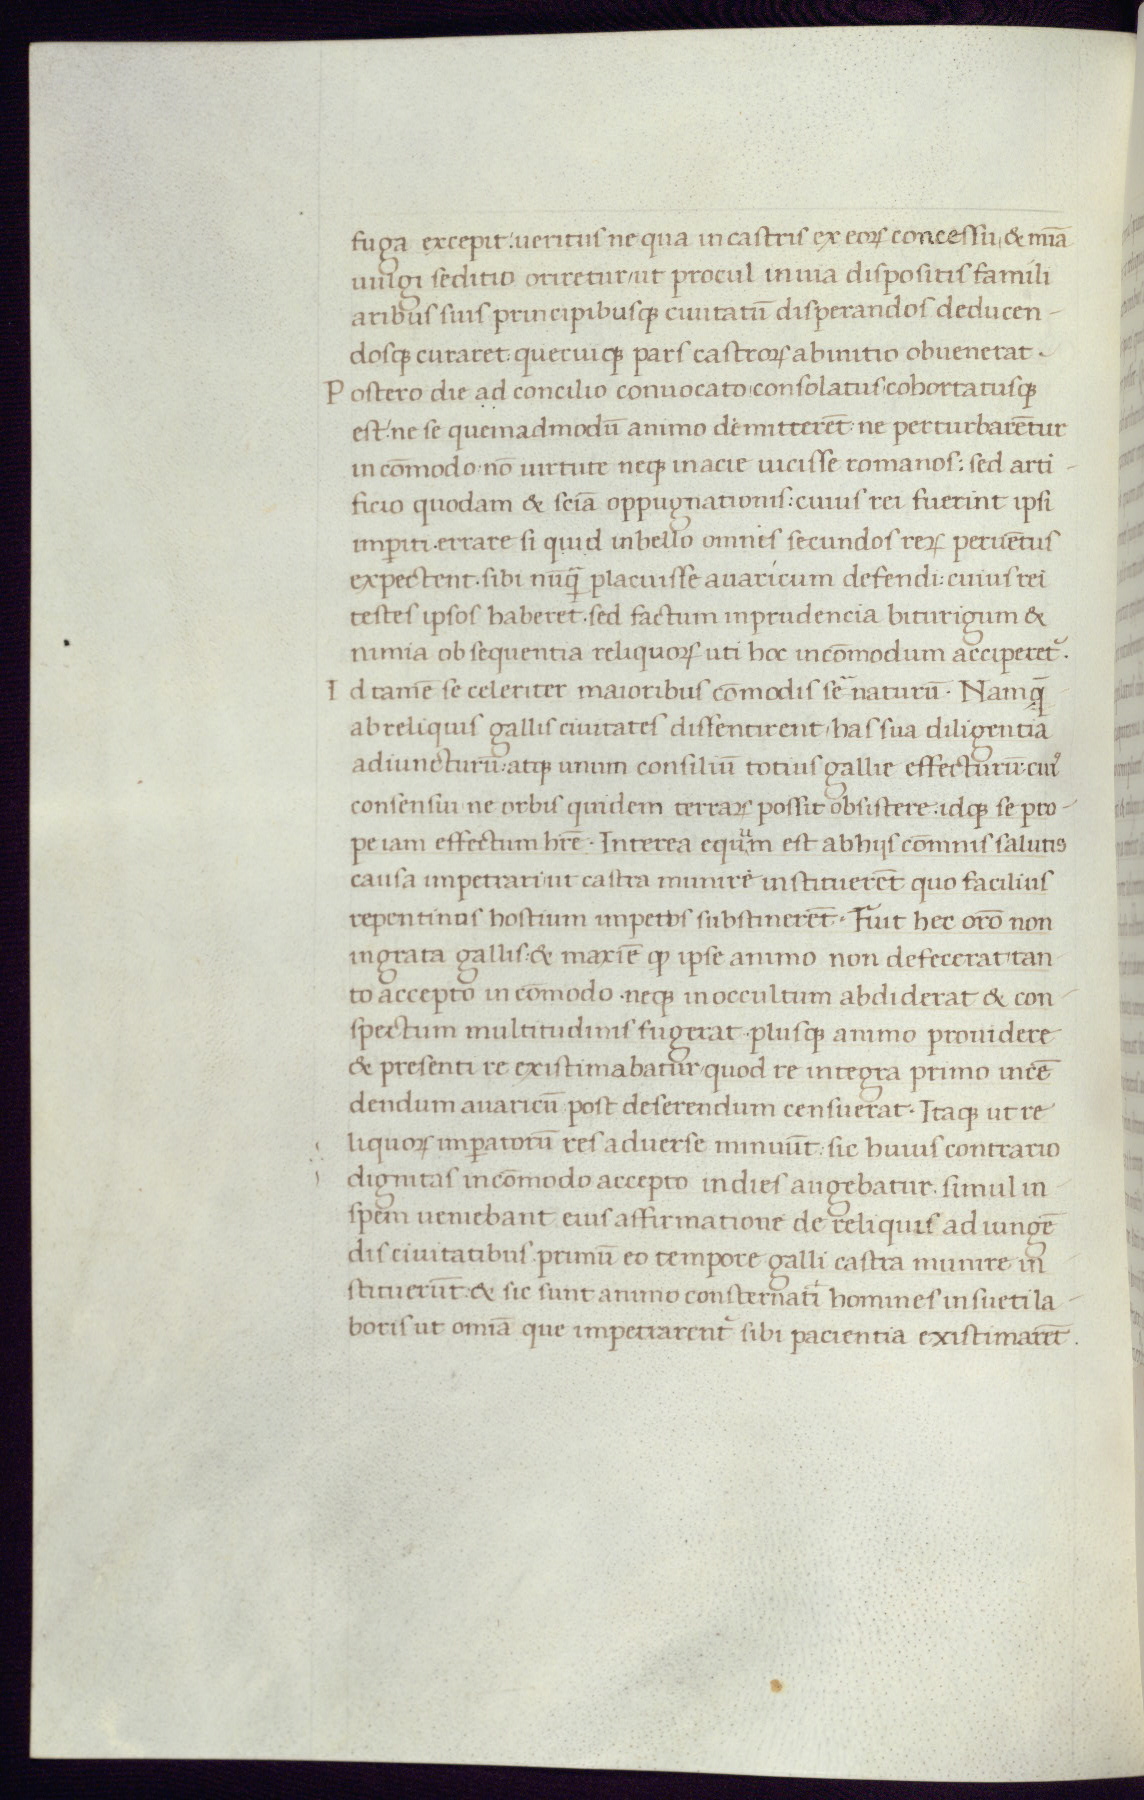 fuga excepit: ueritus ne qua in castris ex eoꝝ concessu, & mīa
uulgi seditio oriretur, ut procul in uia dispositis famili
aribus suis principibusqꝫ ciuitatū disperandos deducen-
dosqꝫ curaret. quecuicqꝫ pars castroꝝ abinitio obuenerat.
Postero die ad concilio conuocato consolatus cohortatusqꝫ
est: ne se quemadmodū animo demitterēt. ne perturbarētur
in cōmodo. nō uirtute neqꝫ in acie uicisse romanos: sed arti-
ficio quodam & sciā oppugnationis: cuius rei fuerint ipsi
imꝑiti. errare si quid in bello omnes secundos reꝝ peruētus
expectent. sibi nūq̄ placuisse auaricum defendi: cuius rei
testes ipsos haberet. sed factum inprudencia biturigum &
nimia obsequentia reliquoꝝ uti hoc incōmodum acciperet᷑.
Id tamē se celeriter maioribus cōmodis se᷑naturū. Namq̄
ab reliquis gallis ciuitates dissentirent, has sua diligentia
adiuncturū: atqꝫ unum consiliū totius gallie effecturū. cui᷒
consensui ne orbis quidem terraꝝ possit obsistere. idqꝫ se pro-
pe iam effectum hrē. Interea equum est ab hijs cōmnis salutis
causa impetrari ut castra munire instituerēt quo facilius
repentinos hostium impetus substinerēt. Fuit hec orō non
ingrata gallis: & maxīe qꝫ ipse animo non defecerat tan-
to accepto incōmodo. neqꝫ in occultum abdiderat & con-
spectum multitudinis fugerat. plusqꝫ animo prouidere
& presentire existimabatur, quod re integra primo incē
dendum auaricū post deserendum censuerat. Itaqꝫ ut re
liquoꝝ imꝑatorū res aduerse minuūt: sic huius contrario
dignitas incōmodo accepto indies augebatur. simul in-
spem ueniebant eius affirmatione de reliquis adiungē
dis ciuitatibus. primū eo tempore galli castra munire in-
stituerūt. & sic sunt animo consternati homines insueti la-
boris ut omīa que impetrarent᷑ sibi pacientia existimarēt.